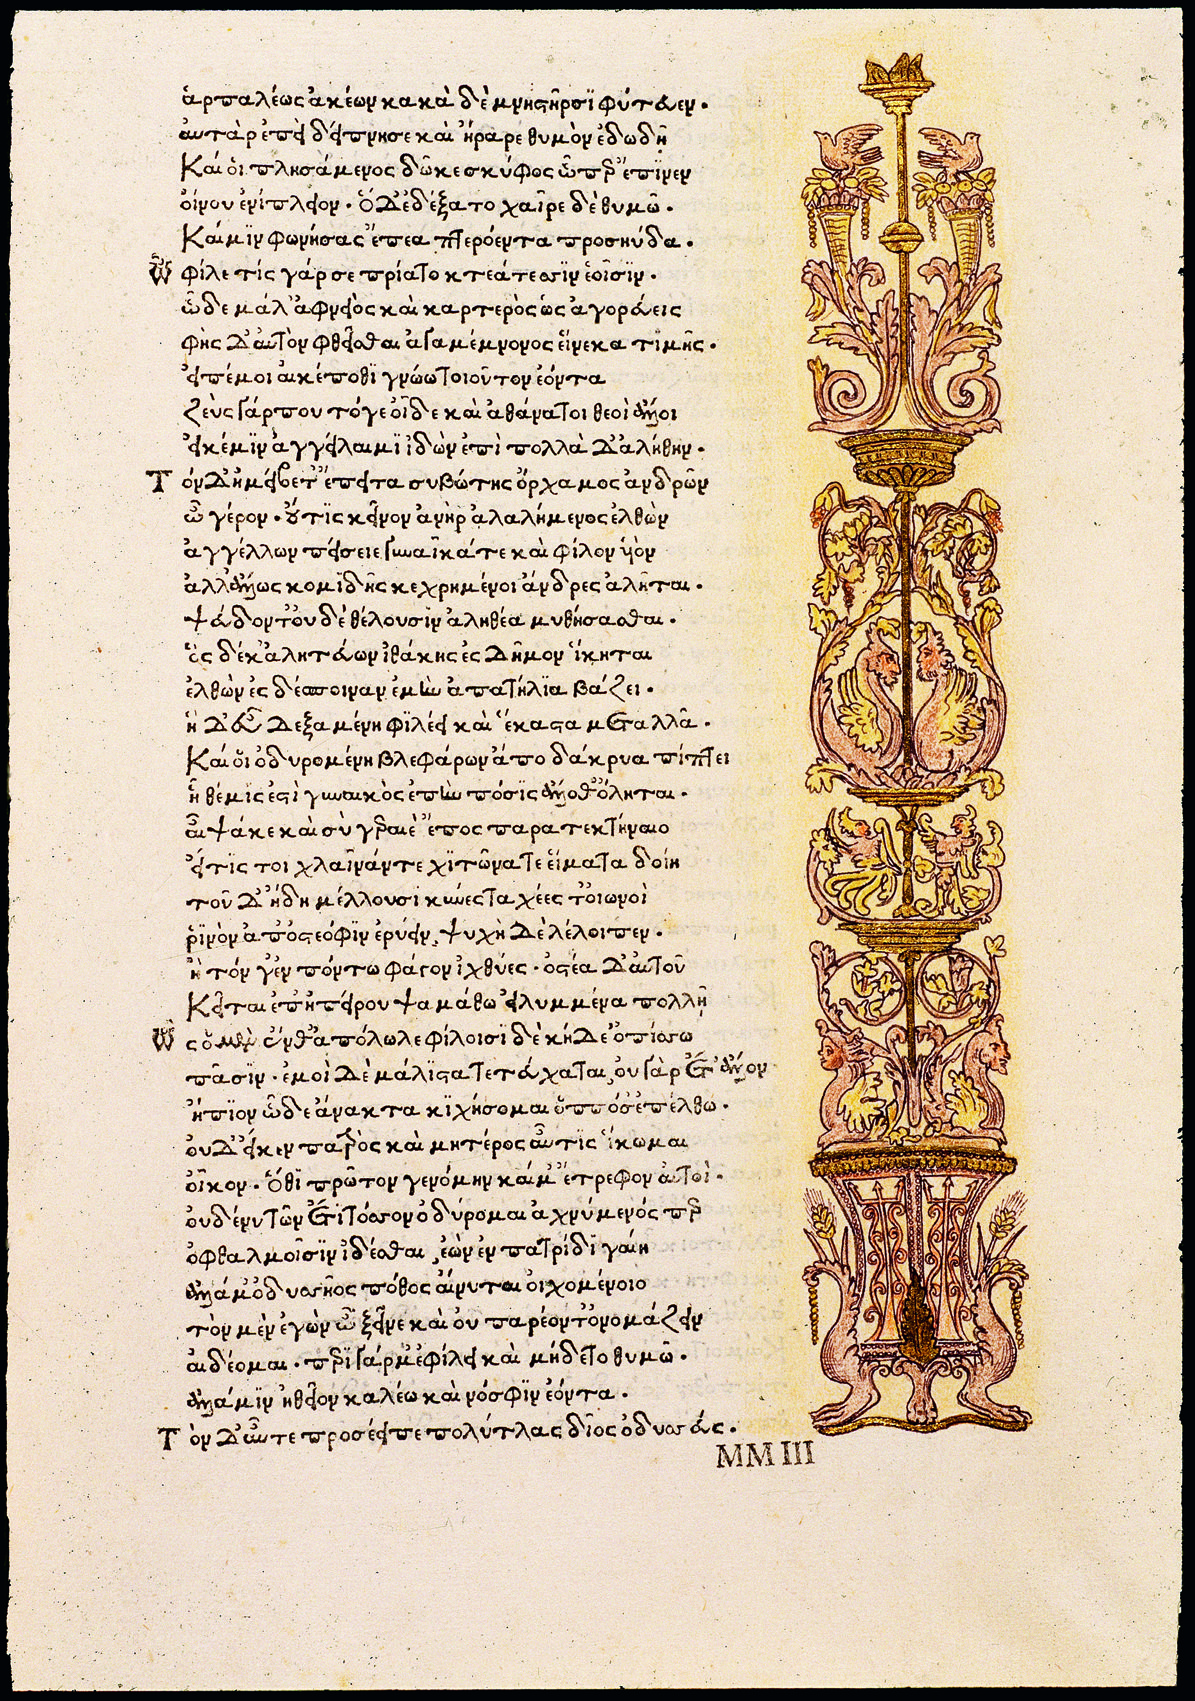 ἁρπαλέως ἀκέων κακὰ δὲ μνηστῆρσϊ φύτευεν.
αυτὰρ ἐπεὶ δείπνησε καὶ ἤραρε θυμὸν ἐδωδῆ
Καί οἱ πλησάμενος δῶκε σκύφος ὧπερ ἔπϊνεν
οἴνου ἐνίπλειον. ὁ Δ' ἐδέξατο χαῖρε δὲ θυμῶ.
Καί μϊν φωνήσας ἔπεα πτερόεντα προσηύδα.
Ὦ φίλε τίς γάρ σε πρίατο κτεάτεσσϊν ἑοῖσϊν.
ὧδε μάλ' ἀφνειὸς καὶ καρτερὸς ὡς ἀγορεύεις
φὴς Δ' ἀυτὸν φθεῖσθαι ἀγαμέμνονος εἵνεκα τιμῆς.
εἰπέ μοι αἴ κέ ποθϊ γνώω τοιοῦτον ἐόντα
Ζεὺς γάρ που τόγε οἶδε καὶ ἀθάνατοι θεοὶ ἄλλοι
εἴ κέ μϊν ἀγγείλαιμϊ ἰδὼν ἐπὶ πολλὰ Δ' ἀλήθην.
Τὸν Δ' ἠμείβετ' ἔπειτα συβώτης ὄρχαμος ἀνδρῶν
ὦ γέρον. οὔτϊς κεῖνον ἀνὴρ ἀλαλήμενος ἐλθὼν
ἀγγέλλων πείσειε γυναῖκά τε καὶ φίλον υἱόν
ἀλλ' ἄλλως κομϊδῆς κεχρημένοι ἄνδρες ἀλῆται.
ψεύδοντ' ὀυδὲ θέλουσϊν ἀληθέα μυθήσασθαι.
ὃς δέ κ' ἀλητεύων ἰθάκης ἐς Δῆμον ἵκηται
ἐλθὼν ἐς δέσποιναν ἐμὴν ἀπατήλϊα βάζει.
ἡ Δ' εὖ Δεξαμένη φϊλέει καὶ ἕκαστα μεταλλᾶ.
Καί οἱ ὀδυρομένη βλεφάρων ἄπο δάκρυα πίπτει
ἣ θέμϊς ἐστὶ γυναικὸς ἐπὴν πόσϊς ἄλλοθ' ὄληται.
αἶψά κε καὶ σὺ γεραιὲ ἔπος παρατεκτήναιο
εἴ τϊς τοι χλαῖνάν τε χϊτῶνά τε εἵματα δοίη
τοῦ Δ' ἤδη μέλλουσϊ κύνες ταχέες τ' ὀιωνοὶ
ῥϊνὸν ἀπ' ὀστεόφϊν ἐρύειν, ψυχὴ Δὲ λέλοιπεν.
ἢ τόν γ' ἐν πόντω φάγον ἰχθύες. ὀστέα Δ' ἀυτοῦ
Κεῖται ἐπ' ἠπείρου ψαμάθω εἰλυμμένα πολλῆ
Ὣς ὁ μὲν ἔνθ' ἀπόλωλε φίλοισϊ δὲ κήΔε' ὀπίσσω
πᾶσϊν. ἐμοὶ Δὲ μάλιστα τετεύχαται, ὀυ γὰρ ἔτ' ἄλλον
ἤπϊον ὧδε ἄνακτα κϊχήσομαι ὁππόσ' ἐπέλθω.
ὀυ Δ' εἴ κεν πατρὸς καὶ μητέρος αὖτϊς ἵκωμαι
ὀῖκον. ὅθϊ πρῶτον γενόμην καί μ' ἔτρεφον ἀυτοὶ.
ὀυδέ νυ τῶν ἔτϊ τόσσον ὀδύρομαι ἀχνύμενός περ
ὀφθαλμοῖσϊν ἰδέσθαι, ἐὼν ἐν πατρίδϊ γαίη
ἀλλά μ' ὀδυσσῆος πόθος ἄινυται οἰχομένοιο
τὸν μὲν ἐγὼν ὦ ξεῖνε καὶ ὀυ παρέοντ' ὀνομάζειν
ἀιδέομαι. περϊ γάρ μ' ἐφίλει καὶ μήδετο θυμῶ.
ἀλλά μϊν ἠθεῖον καλέω καὶ νόσφϊν ἐόντα.
Τὸν Δ' ἀῦτε προσέειπε πολύτλας δῖος ὀδυσσεύς.
MMIII